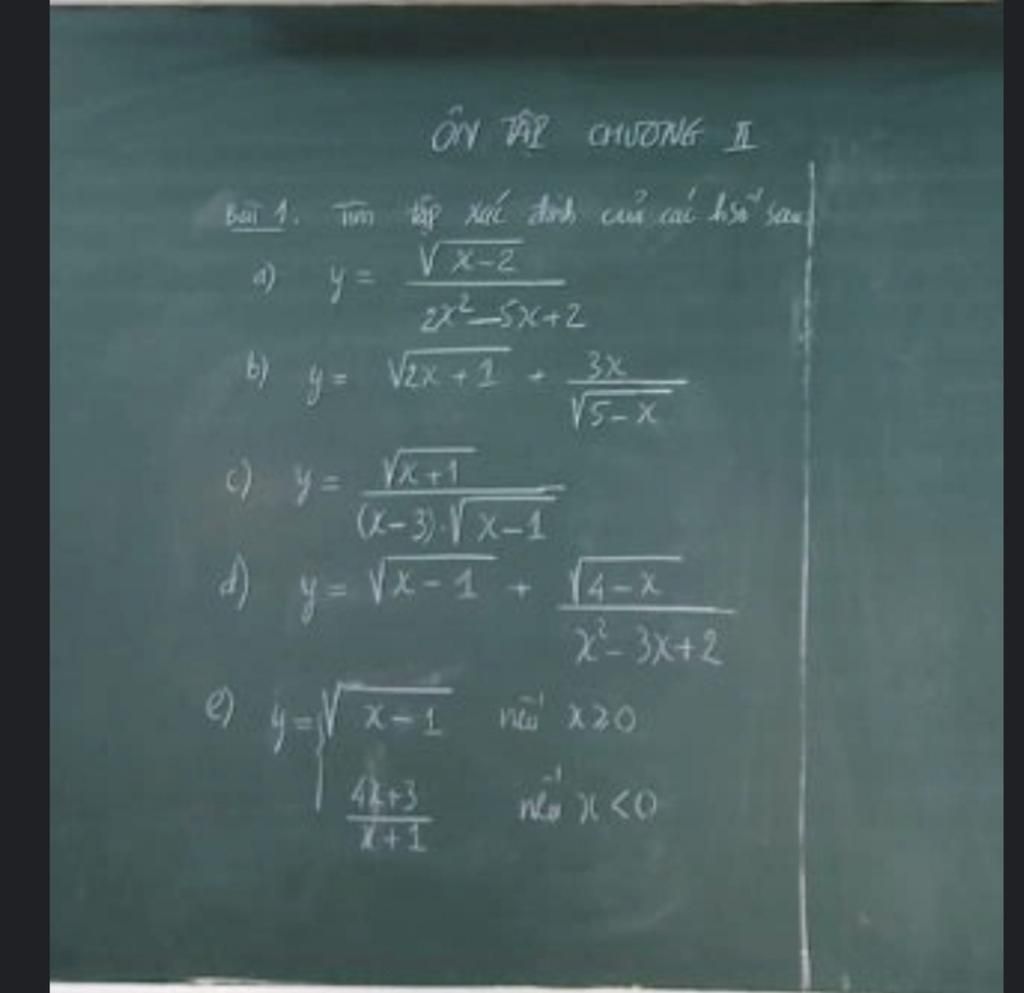 ÔN TẬP CHƯƠNG II
Bài 1. Tìm tập xác định của các hsố sau
a) y = √(x-2) / (2x²-5x+2)
b) y = √(2x+1) + 3x / √(5-x)
c) y = √(x+1) / ((x-3).√(x-1))
d) y = √(x-1) + √(4-x) / (x²-3x+2)
e) y = { √(x-1) nếu x≥0
(4x+3) / (x+1) nếu x<0